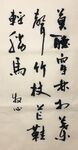 莫聽穿林打葉
聲竹杖芒鞋
輕勝馬